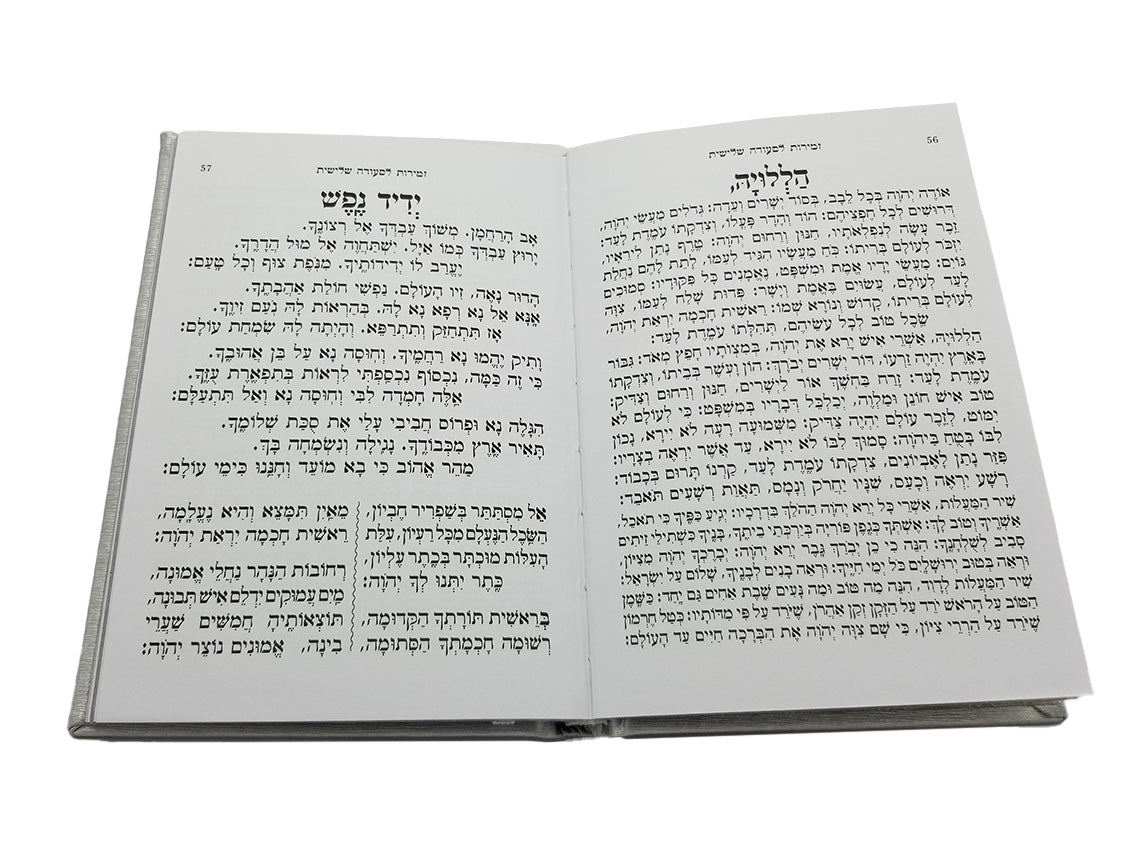 56
זמירות לסעודה שלישית
הַלְלוּיָהּ,
אוֹדֶה יְהֹוָה בְּכָל לֵבָב, בְּסוֹד יְשָׁרִים וְעֵדָה: גְּדֹלִים מַעֲשֵׂי יְהֹוָה,
דְּרוּשִׁים לְכָל חֶפְצֵיהֶם: הוֹד וְהָדָר פָּעֳלוֹ, וְצִדְקָתוֹ עֹמֶדֶת לָעַד:
זֵכֶר עָשָׂה לְנִפְלְאֹתָיו, חַנּוּן וְרַחוּם יְהֹוָה: טֶרֶף נָתַן לִירֵאָיו,
יִזְכֹּר לְעוֹלָם בְּרִיתוֹ: כֹּחַ מַעֲשָׂיו הִגִּיד לְעַמּוֹ, לָתֵת לָהֶם נַחֲלַת
גּוֹיִם: מַעֲשֵׂי יָדָיו אֱמֶת וּמִשְׁפָּט, נֶאֱמָנִים כָּל פִּקּוּדָיו: סְמוּכִים
לָעַד לְעוֹלָם, עֲשׂוּיִם בֶּאֱמֶת וְיָשָׁר: פְּדוּת שָׁלַח לְעַמּוֹ, צִוָּה
לְעוֹלָם בְּרִיתוֹ, קָדוֹשׁ וְנוֹרָא שְׁמוֹ: רֵאשִׁית חָכְמָה יִרְאַת יְהֹוָה,
שֵׂכֶל טוֹב לְכָל עֹשֵׂיהֶם, תְּהִלָּתוֹ עֹמֶדֶת לָעַד:
הַלְלוּיָהּ, אַשְׁרֵי אִישׁ יָרֵא אֶת יְהֹוָה, בְּמִצְוֹתָיו חָפֵץ מְאֹד: גִּבּוֹר
בָּאָרֶץ יִהְיֶה זַרְעוֹ, דּוֹר יְשָׁרִים יְבֹרָךְ: הוֹן וָעֹשֶׁר בְּבֵיתוֹ, וְצִדְקָתוֹ
עֹמֶדֶת לָעַד: זָרַח בַּחֹשֶׁךְ אוֹר לַיְשָׁרִים, חַנּוּן וְרַחוּם וְצַדִּיק:
טוֹב אִישׁ חוֹנֵן וּמַלְוֶה, יְכַלְכֵּל דְּבָרָיו בְּמִשְׁפָּט: כִּי לְעוֹלָם לֹא
יִמּוֹט, לְזֵכֶר עוֹלָם יִהְיֶה צַדִּיק: מִשְּׁמוּעָה רָעָה לֹא יִירָא, נָכוֹן
לִבּוֹ בָּטֻחַ בַּיהֹוָה: סָמוּךְ לִבּוֹ לֹא יִירָא, עַד אֲשֶׁר יִרְאֶה בְצָרָיו:
פִּזַּר נָתַן לָאֶבְיוֹנִים, צִדְקָתוֹ עֹמֶדֶת לָעַד, קַרְנוֹ תָּרוּם בְּכָבוֹד:
רָשָׁע יִרְאֶה וְכָעָס, שִׁנָּיו יַחֲרֹק וְנָמָס, תַּאֲוַת רְשָׁעִים תֹּאבֵד:
שִׁיר הַמַּעֲלוֹת, אַשְׁרֵי כָּל יְרֵא יְהֹוָה הַהֹלֵךְ בִּדְרָכָיו: יְגִיעַ כַּפֶּיךָ כִּי תֹאכֵל,
אַשְׁרֶיךָ וְטוֹב לָךְ: אֶשְׁתְּךָ כְּגֶפֶן פּוֹרִיָּה בְּיַרְכְּתֵי בֵיתֶךָ, בָּנֶיךָ כִּשְׁתִילֵי זֵיתִים
סָבִיב לְשֻׁלְחָנֶךָ: הִנֵּה כִי כֵן יְבֹרַךְ גָּבֶר יְרֵא יְהֹוָה: יְבָרֶכְךָ יְהֹוָה מִצִּיּוֹן,
וּרְאֵה בְּטוּב יְרוּשָׁלָיִם כֹּל יְמֵי חַיֶּיךָ: וּרְאֵה בָנִים לְבָנֶיךָ, שָׁלוֹם עַל יִשְׂרָאֵל:
שִׁיר הַמַּעֲלוֹת לְדָוִד, הִנֵּה מַה טּוֹב וּמַה נָּעִים שֶׁבֶת אַחִים גַּם יָחַד: כַּשֶּׁמֶן
הַטּוֹב עַל הָרֹאשׁ יֹרֵד עַל הַזָּקָן זְקַן אַהֲרֹן, שֶׁיֹּרֵד עַל פִּי מִדּוֹתָיו: כְּטַל חֶרְמוֹן
שֶׁיֹּרֵד עַל הַרְרֵי צִיּוֹן, כִּי שָׁם צִוָּה יְהֹוָה אֶת הַבְּרָכָה חַיִּים עַד הָעוֹלָם:
57
זמירות לסעודה שלישית
יְדִיד נֶפֶשׁ
אָב הָרַחְמָן. מְשׁוֹךְ עַבְדְּךָ אֶל רְצוֹנֶךָ.
יָרוּץ עַבְדְּךָ כְּמוֹ אַיָּל. יִשְׁתַּחֲוֶה אֶל מוּל הֲדָרֶךָ.
יֶעֱרַב לוֹ יְדִידוֹתֶיךָ. מִנֹּפֶת צוּף וְכָל טָעַם:
הָדוּר נָאֶה, זִיו הָעוֹלָם. נַפְשִׁי חוֹלַת אַהֲבָתֶךָ.
אָנָּא אֵל נָא רְפָא נָא לָהּ. בְּהַרְאוֹת לָהּ נֹעַם זִיוֶךָ.
אָז תִּתְחַזֵּק וְתִתְרַפֵּא. וְהָיְתָה לָהּ שִׂמְחַת עוֹלָם:
וָתִיק יֶהֱמוּ נָא רַחֲמֶיךָ. וְחוּסָה נָא עַל בֵּן אֲהוּבֶךָ.
כִּי זֶה כַּמָּה, נִכְסוֹף נִכְסַפְתִּי לִרְאוֹת בְּתִפְאֶרֶת עֻזֶּךָ.
אֵלֶּה חָמְדָה לִבִּי וְחוּסָה נָא וְאַל תִּתְעַלָּם:
הִגָּלֶה נָא וּפְרוֹס חֲבִיבִי עָלַי אֶת סֻכַּת שְׁלוֹמֶךָ.
תָּאִיר אֶרֶץ מִכְּבוֹדֶךָ. נָגִילָה וְנִשְׂמְחָה בָּךְ.
מַהֵר אֱהוֹב כִּי בָא מוֹעֵד וְחָנֵּנוּ כִּימֵי עוֹלָם:
אֵל מִסְתַּתֵּר בְּשַׁפְרִיר חֶבְיוֹן,
הַשֵּׂכֶל הַנֶּעְלָם מִכָּל רַעְיוֹן, עִלַּת
הָעִלּוֹת מוּכְתָּר בְּכֶתֶר עֶלְיוֹן,
כֶּתֶר יִתְּנוּ לְךָ יְהֹוָה:
בְּרֵאשִׁית תּוֹרָתְךָ הַקְּדוּמָה,
רְשׁוּמָה חָכְמָתְךָ הַסְּתוּמָה,
מֵאַיִן תִּמָּצֵא וְהִיא נֶעֱלָמָה,
רֵאשִׁית חָכְמָה יִרְאַת יְהֹוָה:
רְחוֹבוֹת הַנָּהָר נַחֲלֵי אֱמוּנָה,
מַיִם עֲמוּקִים יִדְלֵם אִישׁ תְּבוּנָה,
תּוֹצְאוֹתֶיהָ חֲמִשִּׁים שַׁעֲרֵי
בִינָה, אֱמוּנִים נוֹצֵר יְהֹוָה: